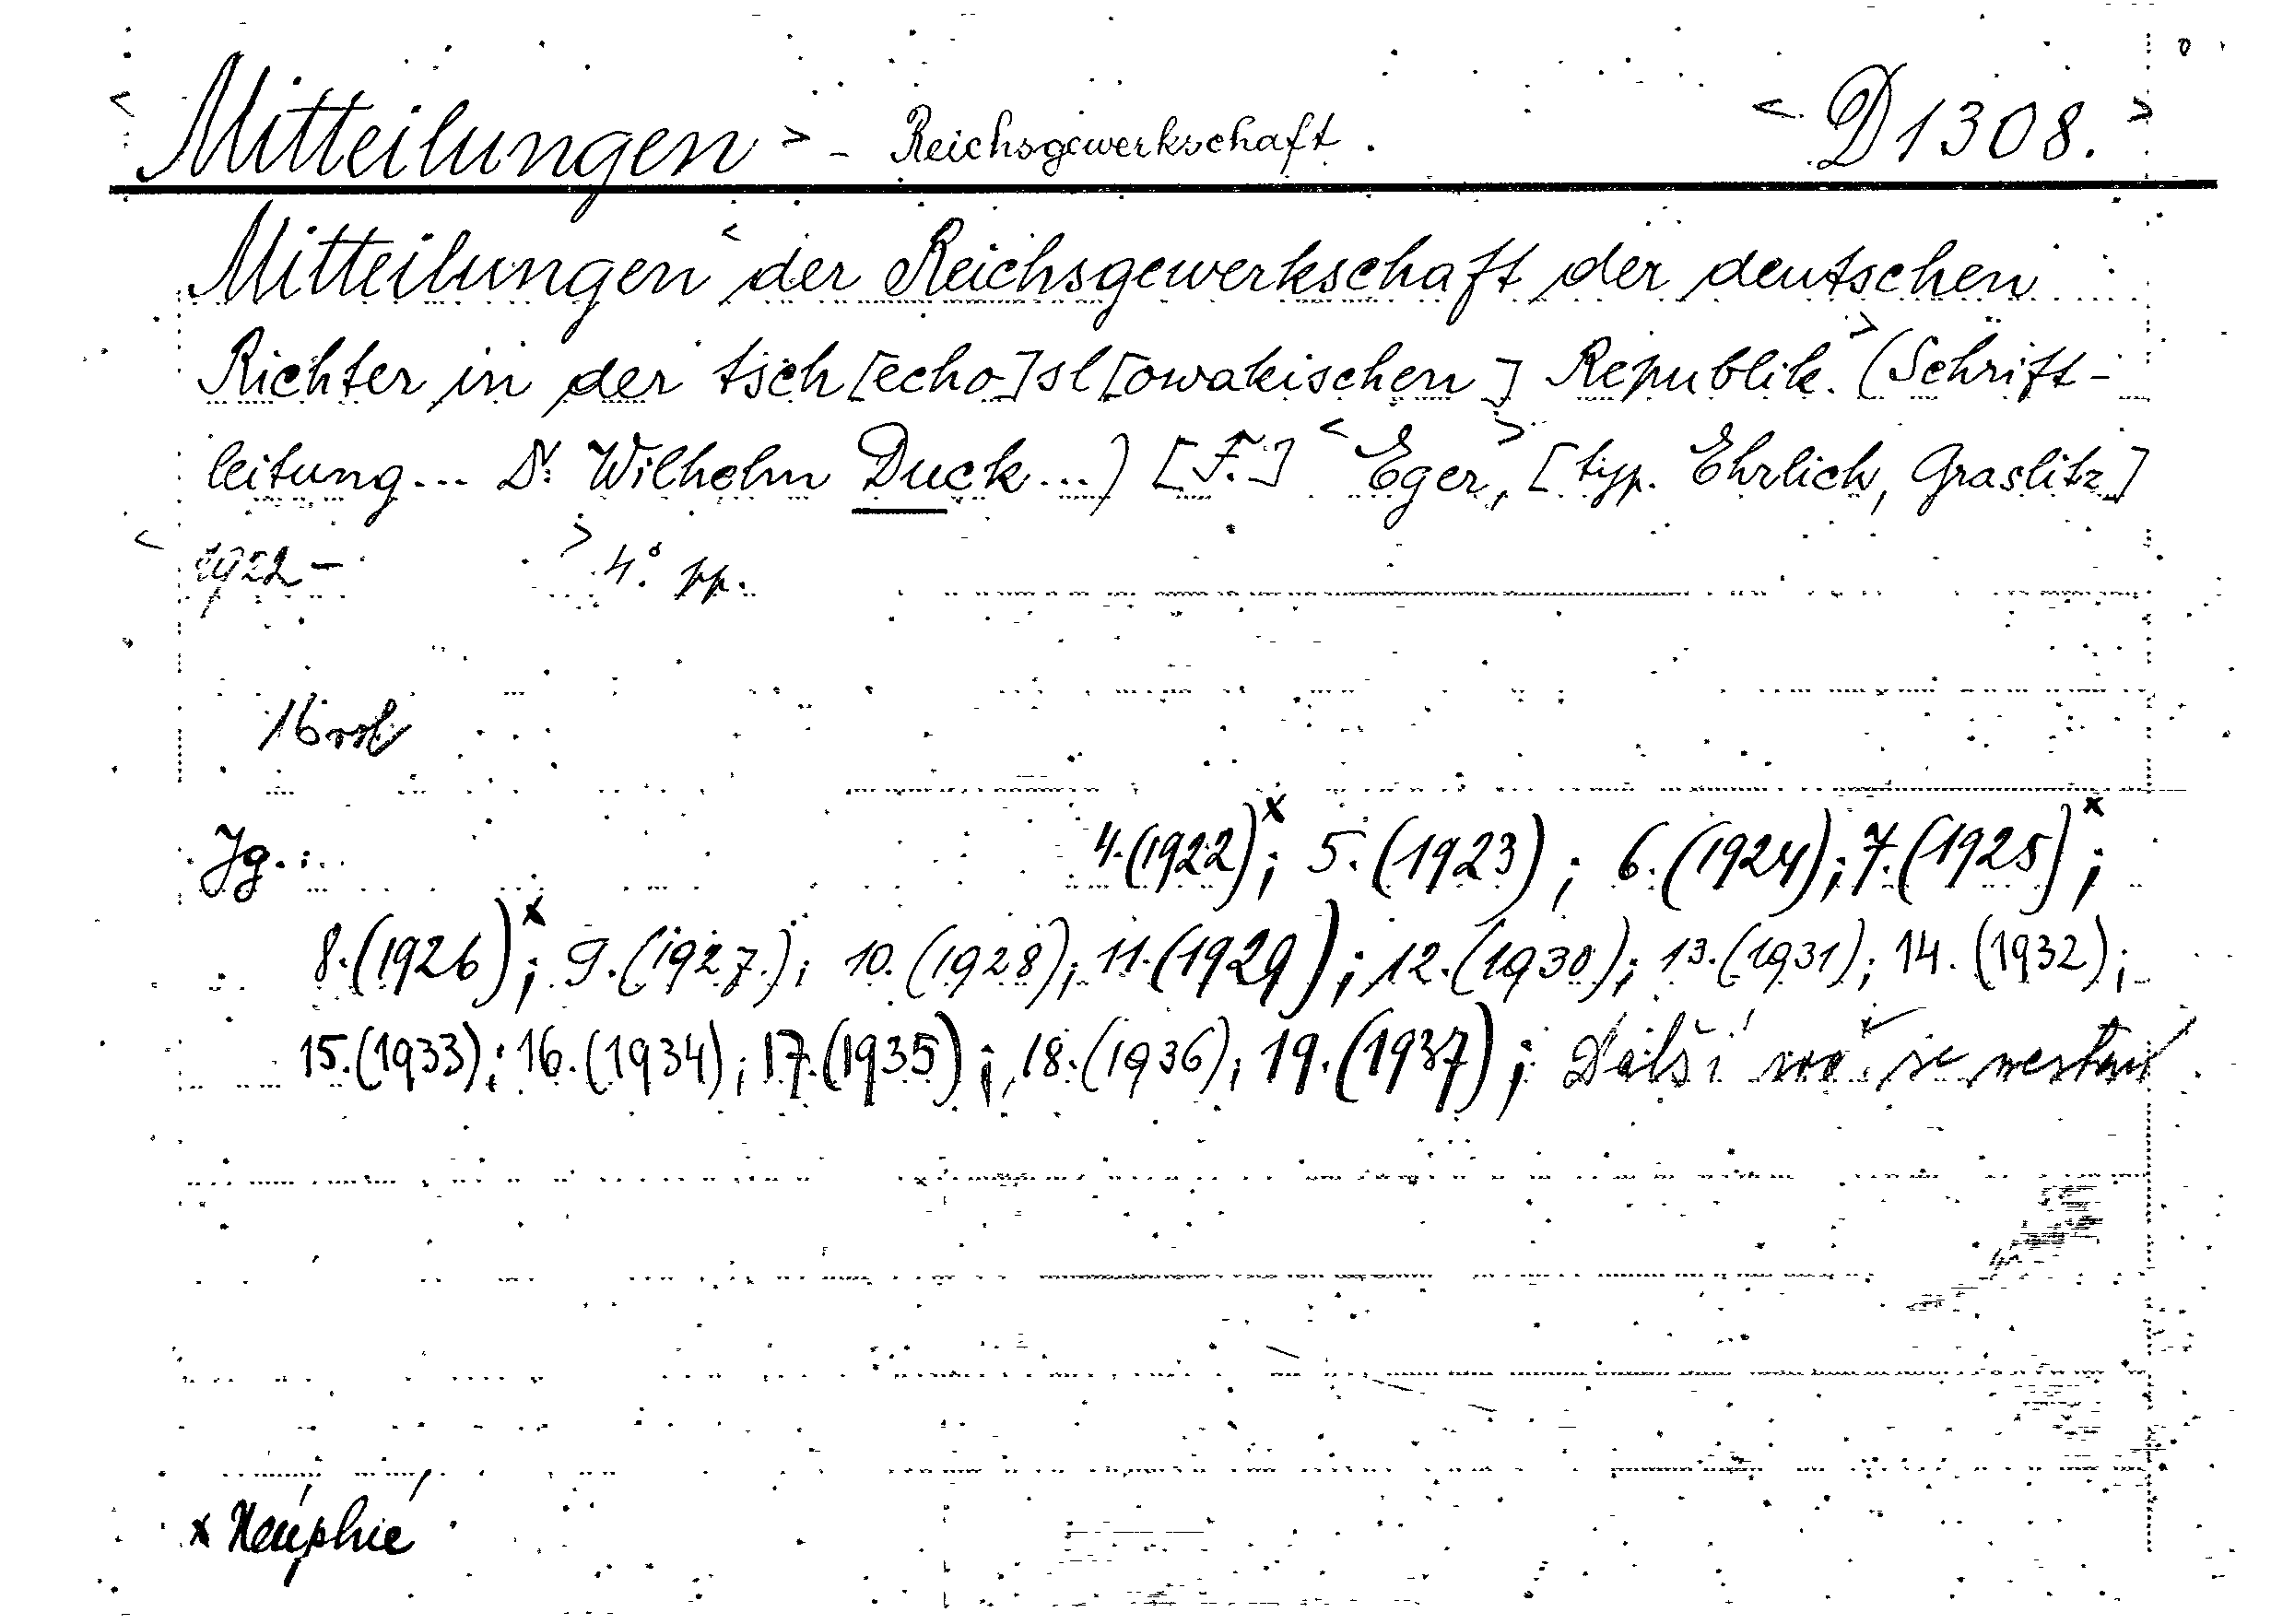 < Mitteilungen > - Reichsgewerkschaft. < D 1308. >
Mitteilungen < der Reichsgewerkschaft der deutschen
Richter in der tsch[echo]sl[owakischen] Republik. > (Schrift-
leitung... Dr. Wilhelm Duck...) [F.] < Eger, > [typ. Ehrlich, Graslitz]
< 1922 - > 4° pp.
16 vol
Jg.: 4.(1922)x; 5.(1923); 6.(1924); 7.(1925)x;
8.(1926)x; 9.(1927.); 10.(1928); 11.(1929); 12.(1930); 13.(1931); 14.(1932);
15.(1933); 16.(1934); 17.(1935); 18.(1936); 19.(1937); Další
x Neúplné